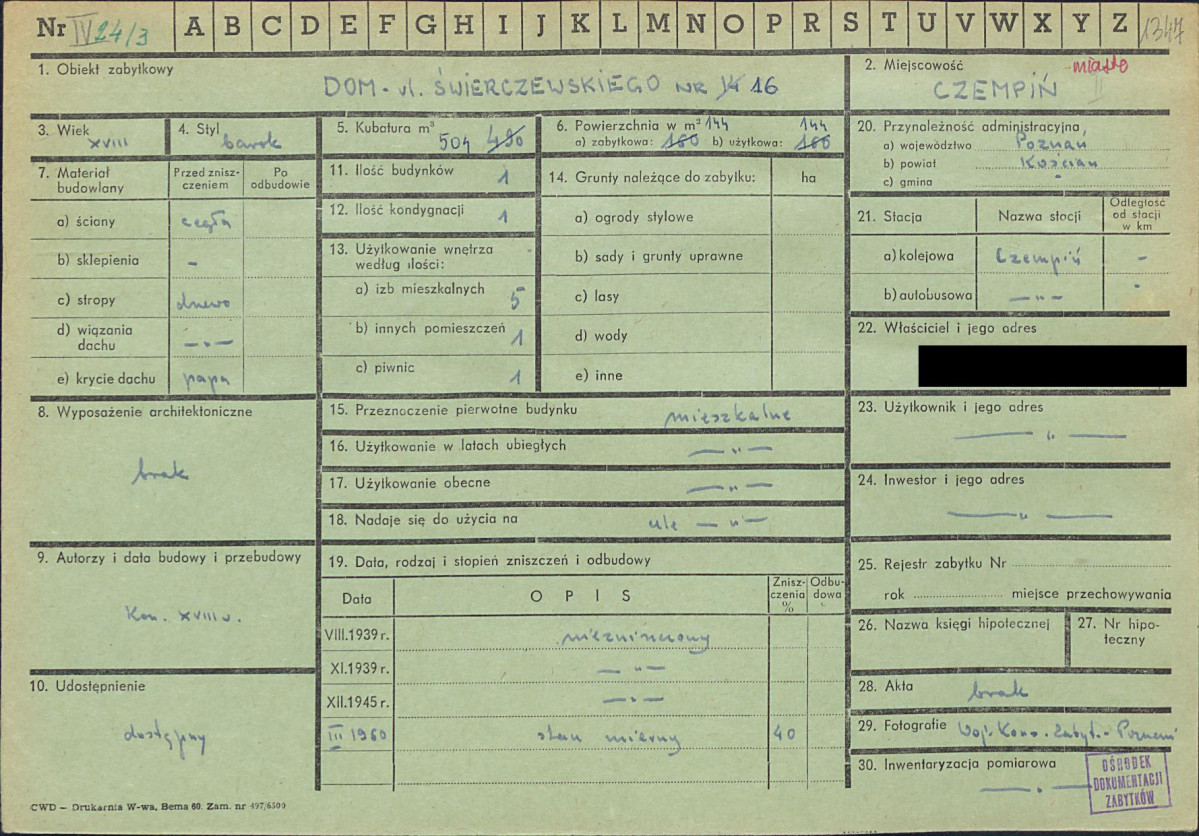 Nr IV 24/3 A B C D E F G H I J K L M N O P R S T U V W X Y Z 1347
1. Obiekt zabytkowy
DOM - ul. ŚWIERCZEWSKIEGO NR 14 16
2. Miejscowość miasto
CZEMPIŃ
3. Wiek
XVIII
4. Styl
barok
5. Kubatura m³
504 490
6. Powierzchnia w m² 144 144
a) zabytkowa: 180 b) użytkowa: 180
20. Przynależność administracyjna
a) województwo Poznań
b) powiat Kościan
c) gmina -
7. Materiał budowlany
Przed zniszczeniem
Po odbudowie
a) ściany cegła
b) sklepienia -
c) stropy drewno
d) wiązania dachu — „ —
e) krycie dachu papa
11. Ilość budynków 1
12. Ilość kondygnacji 1
13. Użytkowanie wnętrza według ilości:
a) izb mieszkalnych 5
b) innych pomieszczeń 1
c) piwnic 1
14. Grunty należące do zabytku: ha
a) ogrody stylowe
b) sady i grunty uprawne
c) lasy
d) wody
e) inne
21. Stacja Nazwa stacji Odległość od stacji w km
a) kolejowa Czempiń -
b) autobusowa — „ — -
22. Właściciel i jego adres
8. Wyposażenie architektoniczne
brak
15. Przeznaczenie pierwotne budynku mieszkalne
16. Użytkowanie w latach ubiegłych — „ —
17. Użytkowanie obecne — „ —
18. Nadaje się do użycia na cele — „ —
23. Użytkownik i jego adres
— „ —
24. Inwestor i jego adres
— „ —
9. Autorzy i data budowy i przebudowy
Kon. XVIII w.
19. Data, rodzaj i stopień zniszczeń i odbudowy
Data OPIS Zniszczenia % Odbudowa
VIII.1939 r. niezniszczony
XI.1939 r. — „ —
XII.1945 r. — „ —
III 1960 stan mierny 40
25. Rejestr zabytku Nr
rok miejsce przechowywania
26. Nazwa księgi hipotecznej
27. Nr hipoteczny
10. Udostępnienie
dostępny
28. Akta brak
29. Fotografie Woj. Kons. Zabyt. - Poznań
30. Inwentaryzacja pomiarowa
— „ —
OŚRODEK
DOKUMENTACJI
ZABYTKÓW
CWD — Drukarnia W-wa, Bema 60. Zam. nr 497/6500